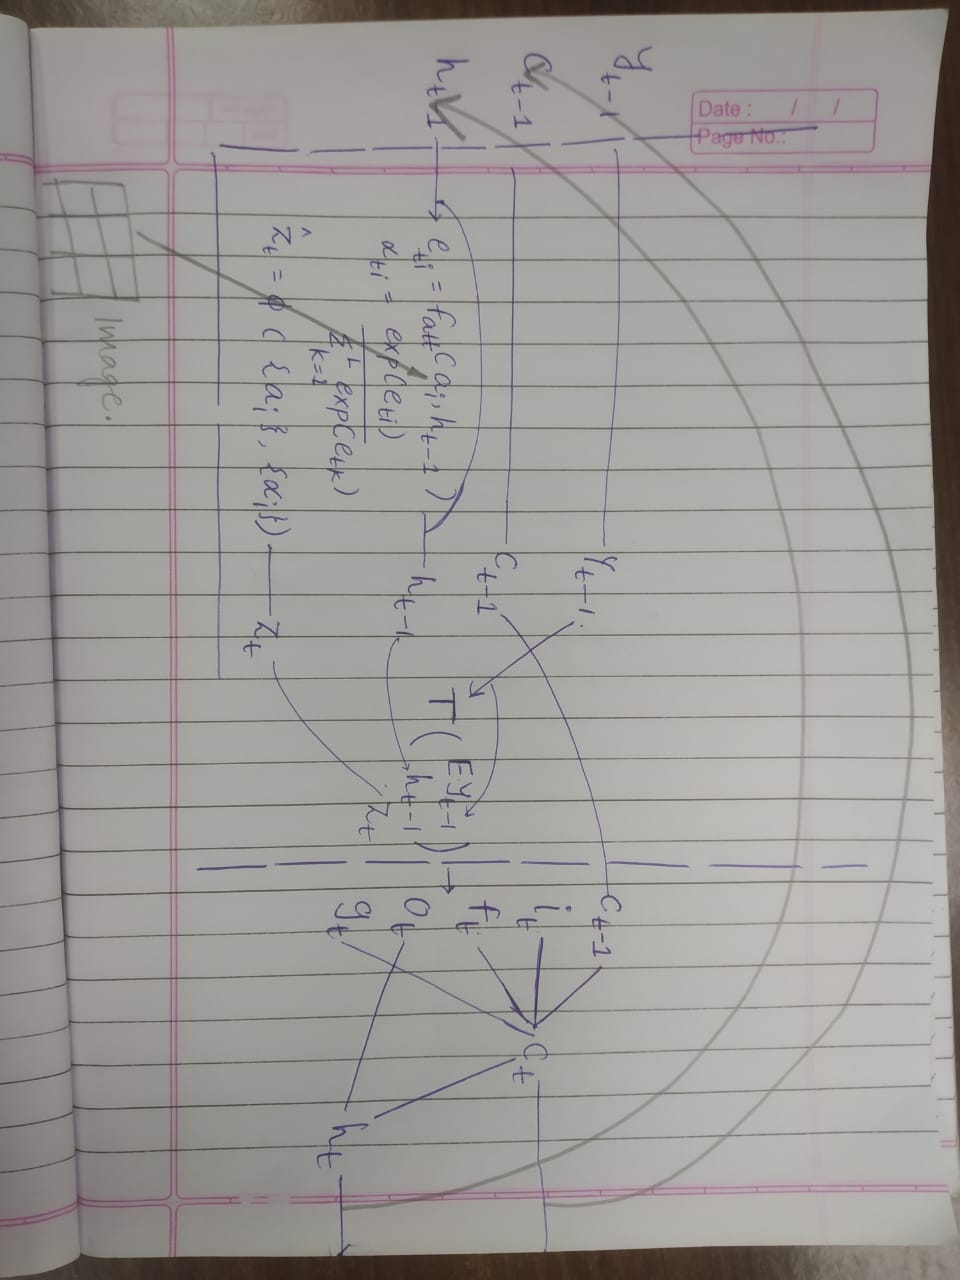 Date : / /
Page No.:
y_{t-1}
C_{t-1}
h_{t-1}
e_{ti} = f_{att} (a_i, h_{t-1})
α_{ti} = exp(e_{ti})
Σ^L_{k=1} exp(e_{tk})
ẑ_t = φ ( {a_i}, {α_i})
Image.
y_{t-1}.
C_{t-1}
h_{t-1}
z_t
T ( Ey_{t-1}
h_{t-1} )
z_t
C_{t-1}
i_t
f_t
o_t
g_t
C_t
h_t